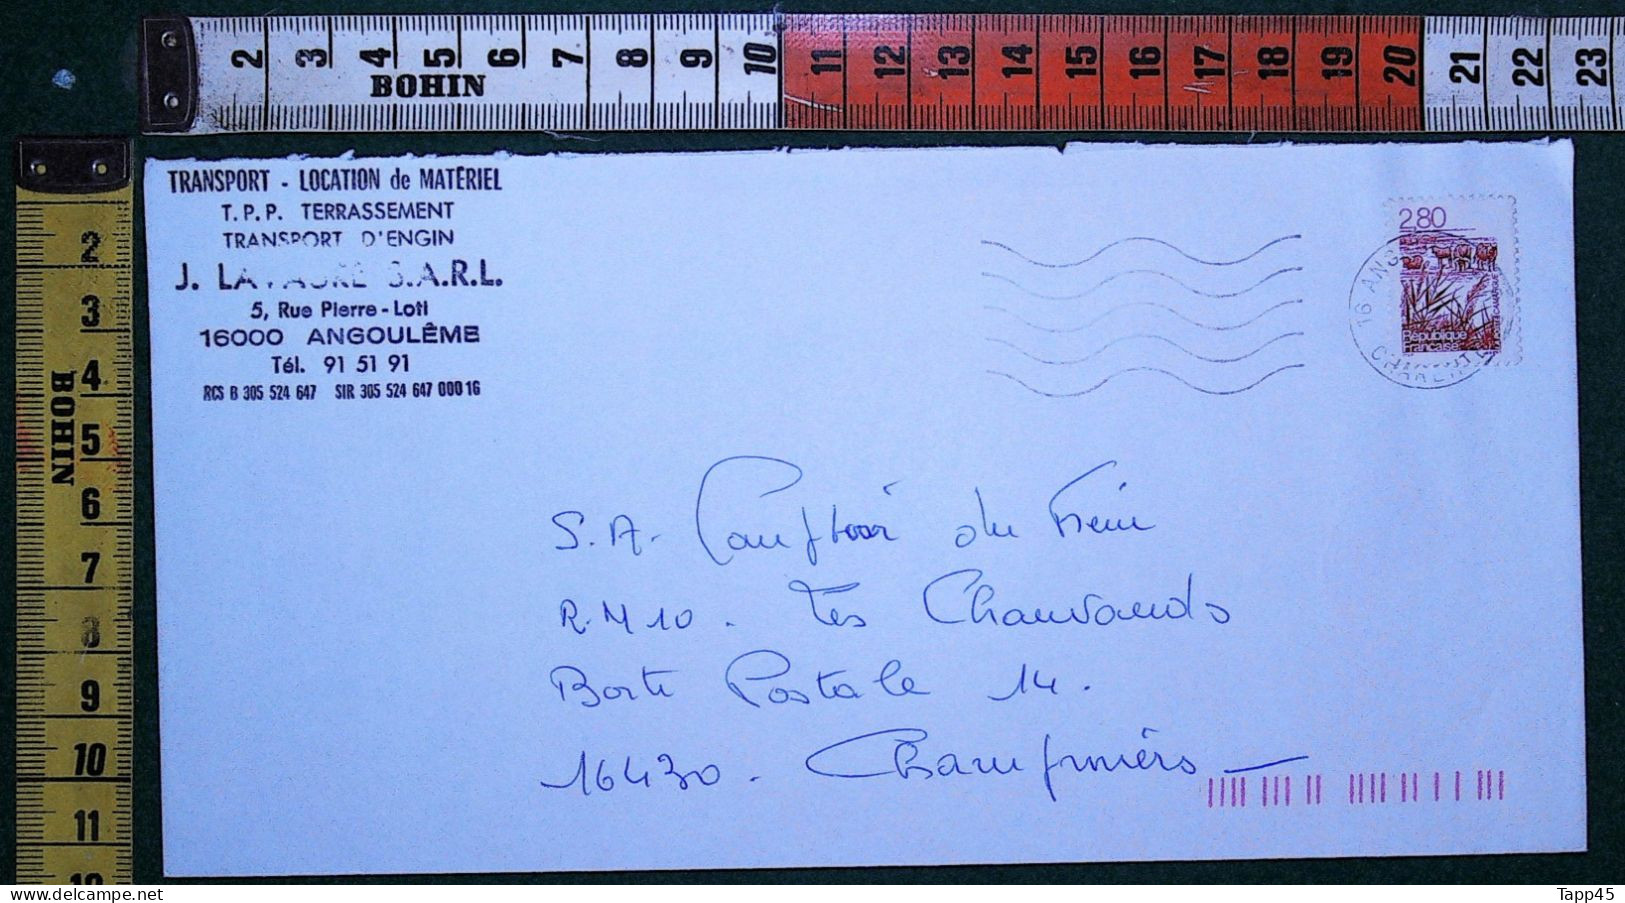 2 3 4 5 6 7 8 9 10 11 12 13 14 15 16 17 18 19 20 21 22 23
BOHIN
2
3
4
BOHIN
5
6
7
8
9
10
11
TRANSPORT - LOCATION de MATÉRIEL
T.P.P. TERRASSEMENT
TRANSPORT D'ENGIN
J. S.A.R.L.
5, Rue Pierre-Loti
16000 ANGOULÊME
Tél. 91 51 91
RCS B 305 524 647 SIR 305 524 647 000 16
2,80
République
française
16 ANG
CHARENTE
S.A. Comptoir du Frein
R.N 10. Les Chauvauds
Boite Postale 14.
16430. Champniers
Tapp45